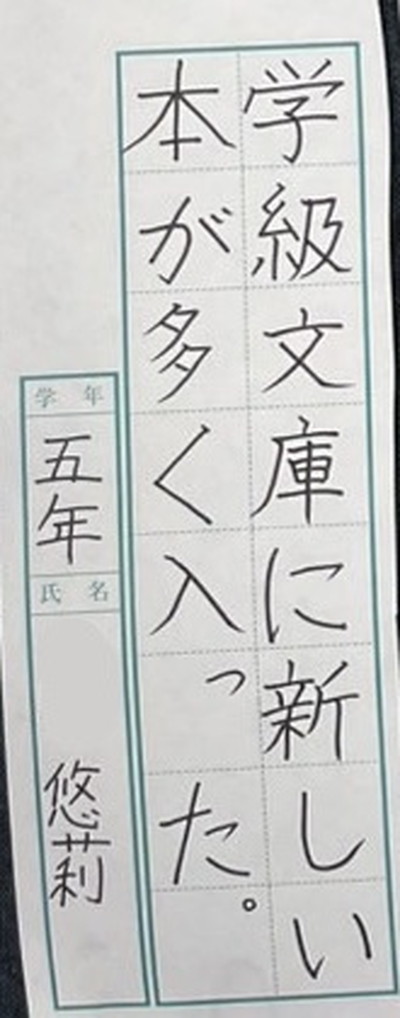 学級文庫に新しい
本が多く入った。
学年
五年
氏名
悠莉